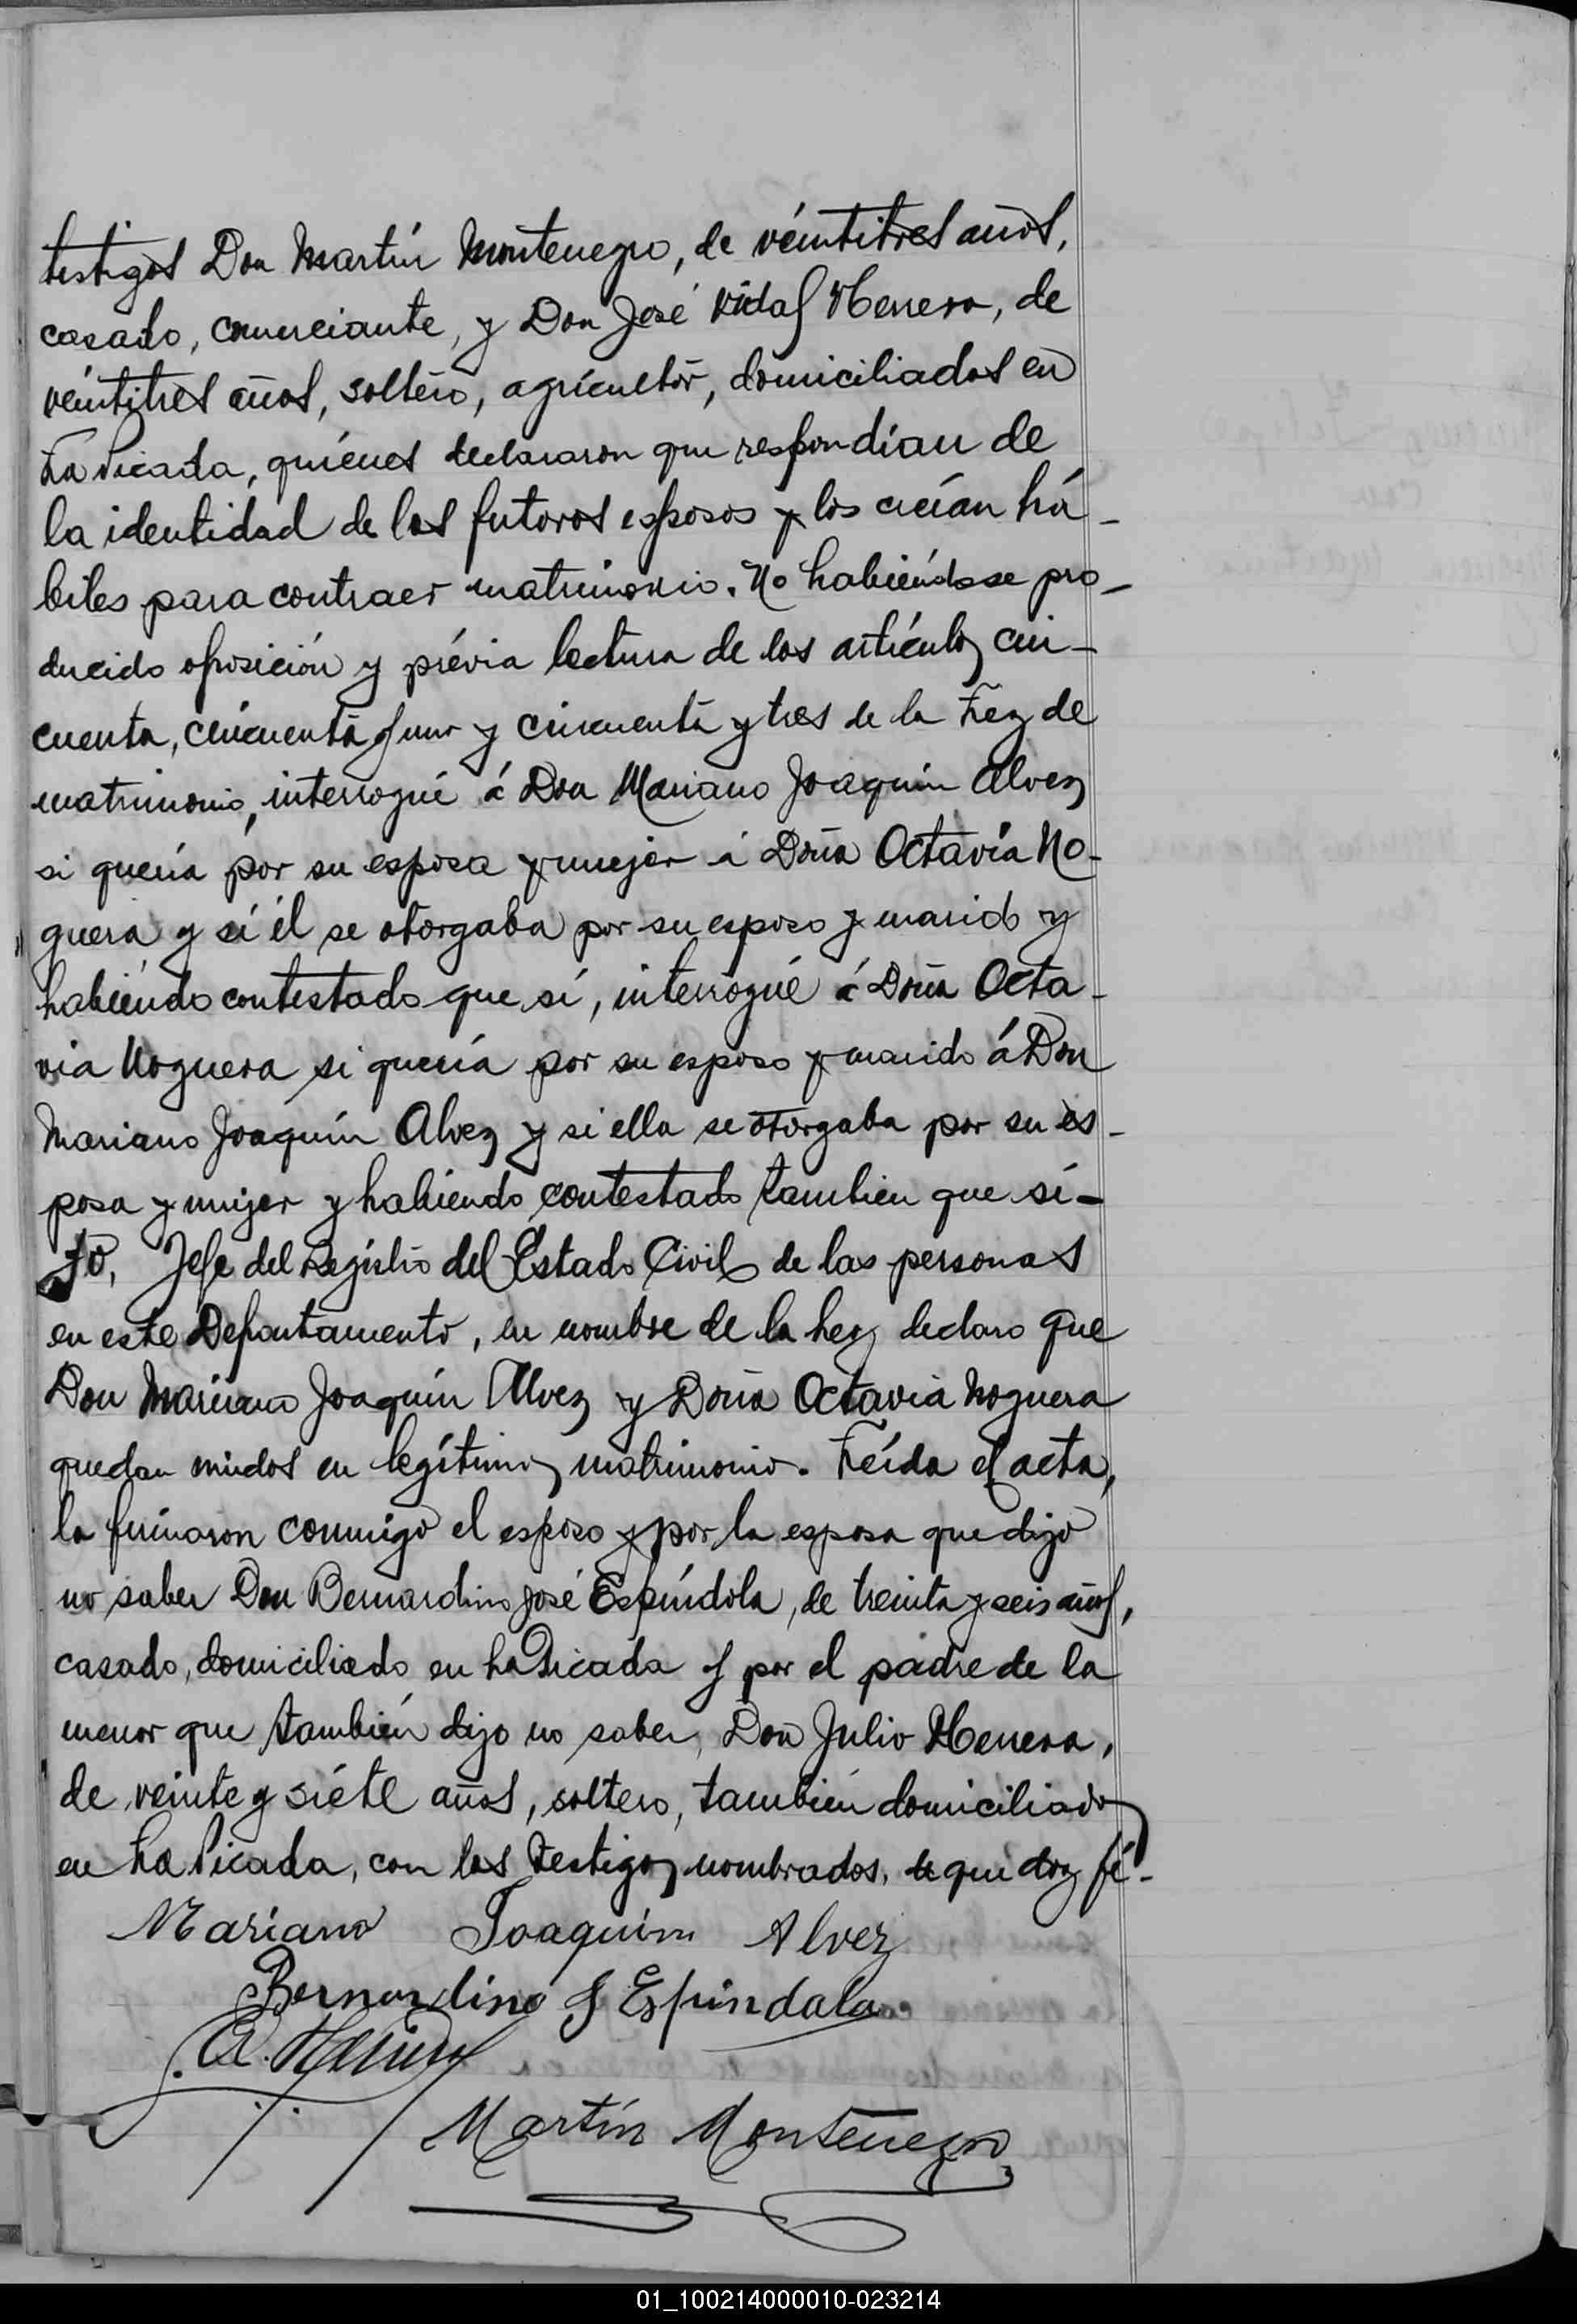 testigos Don Martín Montenegro, de veintitres años,
casado, comerciante, y Don José Vidal Herrera, de
veintitres años, soltero, agricultor, domiciliados en
La Picada, quiénes declararon que respondían de
la identidad de los futuros esposos y los creían há-
biles para contraer matrimonio. No habiéndose pro-
ducido oposición y prévia lectura de los artículos cin-
cuenta, cincuenta y uno y cincuenta y tres de la Ley de
matrimonio, interrogué á Don Mariano Joaquín Alvez
si quería por su esposa y mujer á Doña Octavia No-
guera y si él se otorgaba por su esposo y marido y
habiéndo contestado que sí, interrogué á Doña Octa-
via Noguera si quería por su esposo y marido á Don
Mariano Joaquín Alvez y si ella se otorgaba por su es-
posa y mujer y habiendo contestado tambien que sí-
Yo, Jefe del Registro del Estado Civil de las personas
en este Departamento, en nombre de la Ley declaro que
Don Mariano Joaquín Alvez y Doña Octavia Noguera
quedan unidos en legítimo matrimonio. Leída el acta,
la firmaron conmigo el esposo y por la esposa que dijo
no saber Don Bernardino José Espíndola, de treinta y seis años,
casado, domiciliado en La Picada y por el padre de la
menor que también dijo no saber, Don Julio Herrera,
de veinte y siéte años, soltero, también domiciliado
en La Picada, con los testigos nombrados, de que doy fé-
Mariano Joaquim Alvez
Bernardino J Espindola
Martín Montenegro
01_100214000010-023214